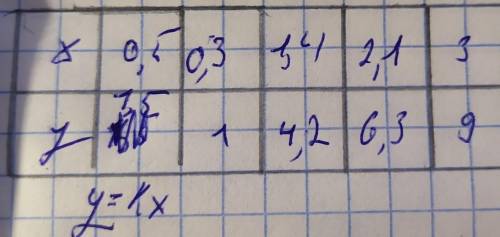 x 0,5 0,3 1,4 2,1 3
y 1,5 1 4,2 6,3 9
y=kx